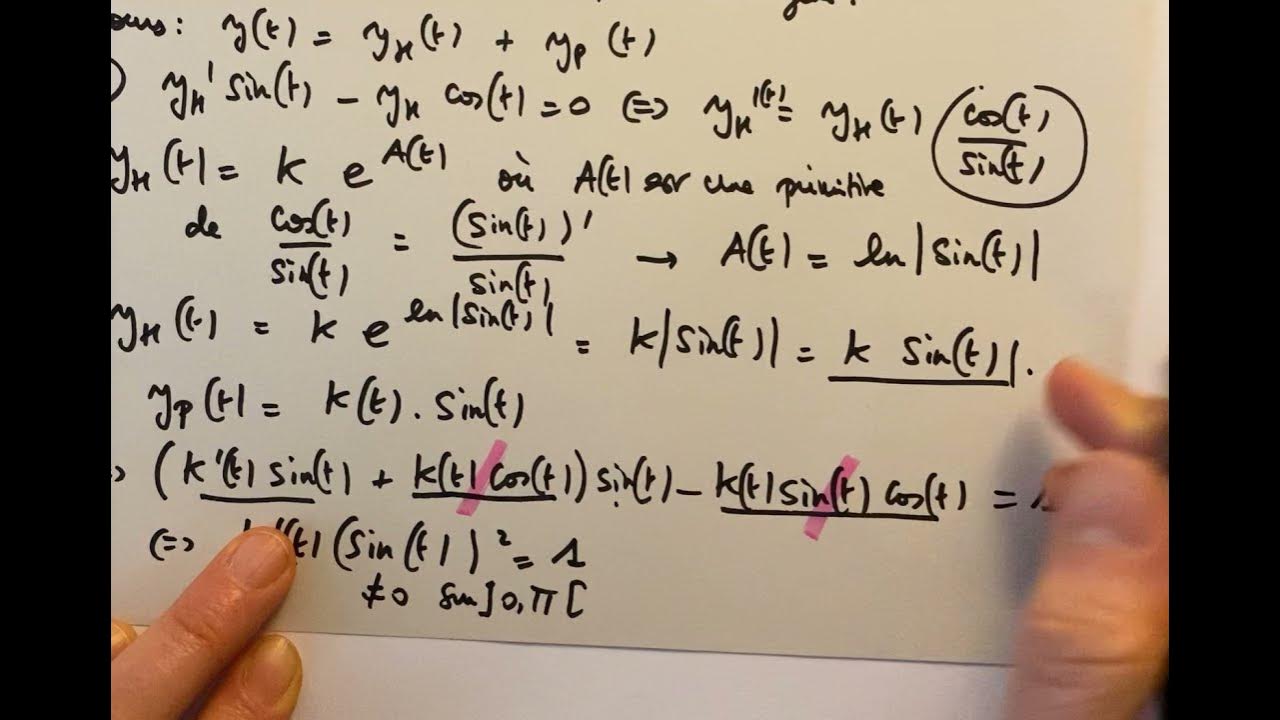 y(t) = y_H(t) + y_p(t)
) y_H' sin(t) - y_H cos(t) = 0 <=> y_H'(t) = y_H(t) cos(t)/sin(t)
y_H(t) = k e^A(t) où A(t) est une primitive
de cos(t)/sin(t) = (sin(t))'/sin(t) → A(t) = ln|sin(t)|
y_H(t) = k e^ln|sin(t)| = k|sin(t)| = k sin(t)|.
y_p(t) = k(t) . sin(t)
(k'(t) sin(t) + k(t) cos(t)) sin(t) - k(t) sin(t) cos(t) = 1
<=> (t) (sin(t))² = 1
≠0 sur ]0,π[